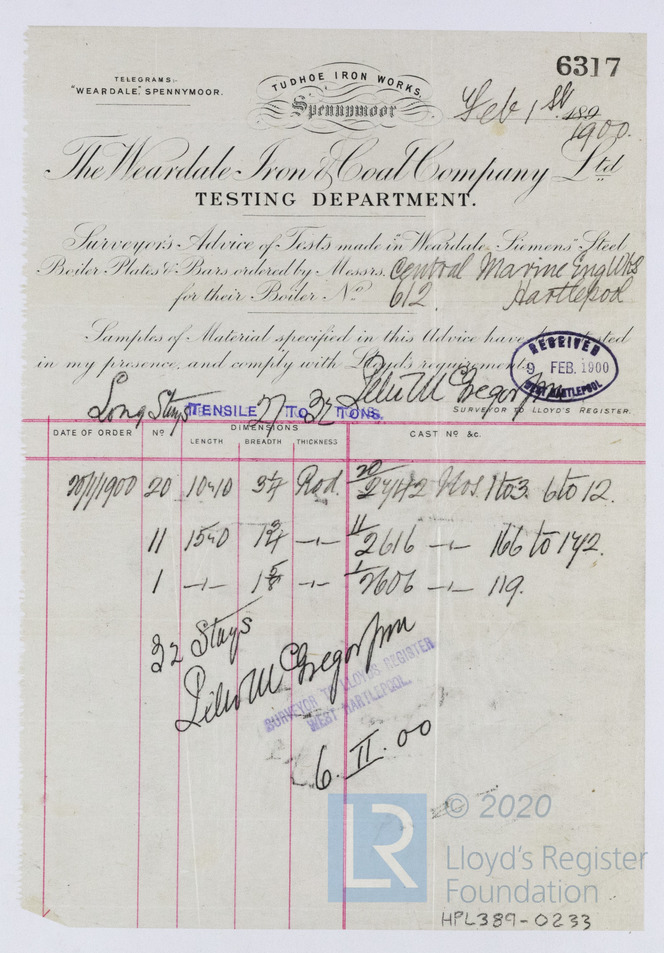 6317
TELEGRAMS:-
"WEARDALE," SPENNYMOOR.
TUDHOE IRON WORKS,
Spennymoor
Feb 1st 189
1900.
The Weardale Iron & Coal Company Ltd
TESTING DEPARTMENT.
Surveyor's Advice of Tests made in "Weardale Siemens" Steel
Boiler Plates & Bars ordered by Messrs. Central Marine Eng Wks
for their Boiler No. 612. Hartlepool
Samples of Material specified in this Advice have been tested
in my presence, and comply with Lloyd's requirements.
RECEIVED
9 FEB. 1900
WEST HARTLEPOOL
SURVEYOR TO LLOYD'S REGISTER.
Long Stays TENSILE 27 TO 32 TONS.
DATE OF ORDER No DIMENSIONS CAST No &c.
LENGTH BREADTH THICKNESS
20/1/1900 20 Rod. 20 Nos. 1 to 3. 6 to 12.
11 11 2616 -"- 166 to 172.
1 -"- -"- 1 2606 -"- 119.
32 Stays
SURVEYOR TO LLOYDS REGISTER
WEST HARTLEPOOL.
6. II. 00
LR
© 2020
Lloyd's Register
Foundation
HPL389-0233